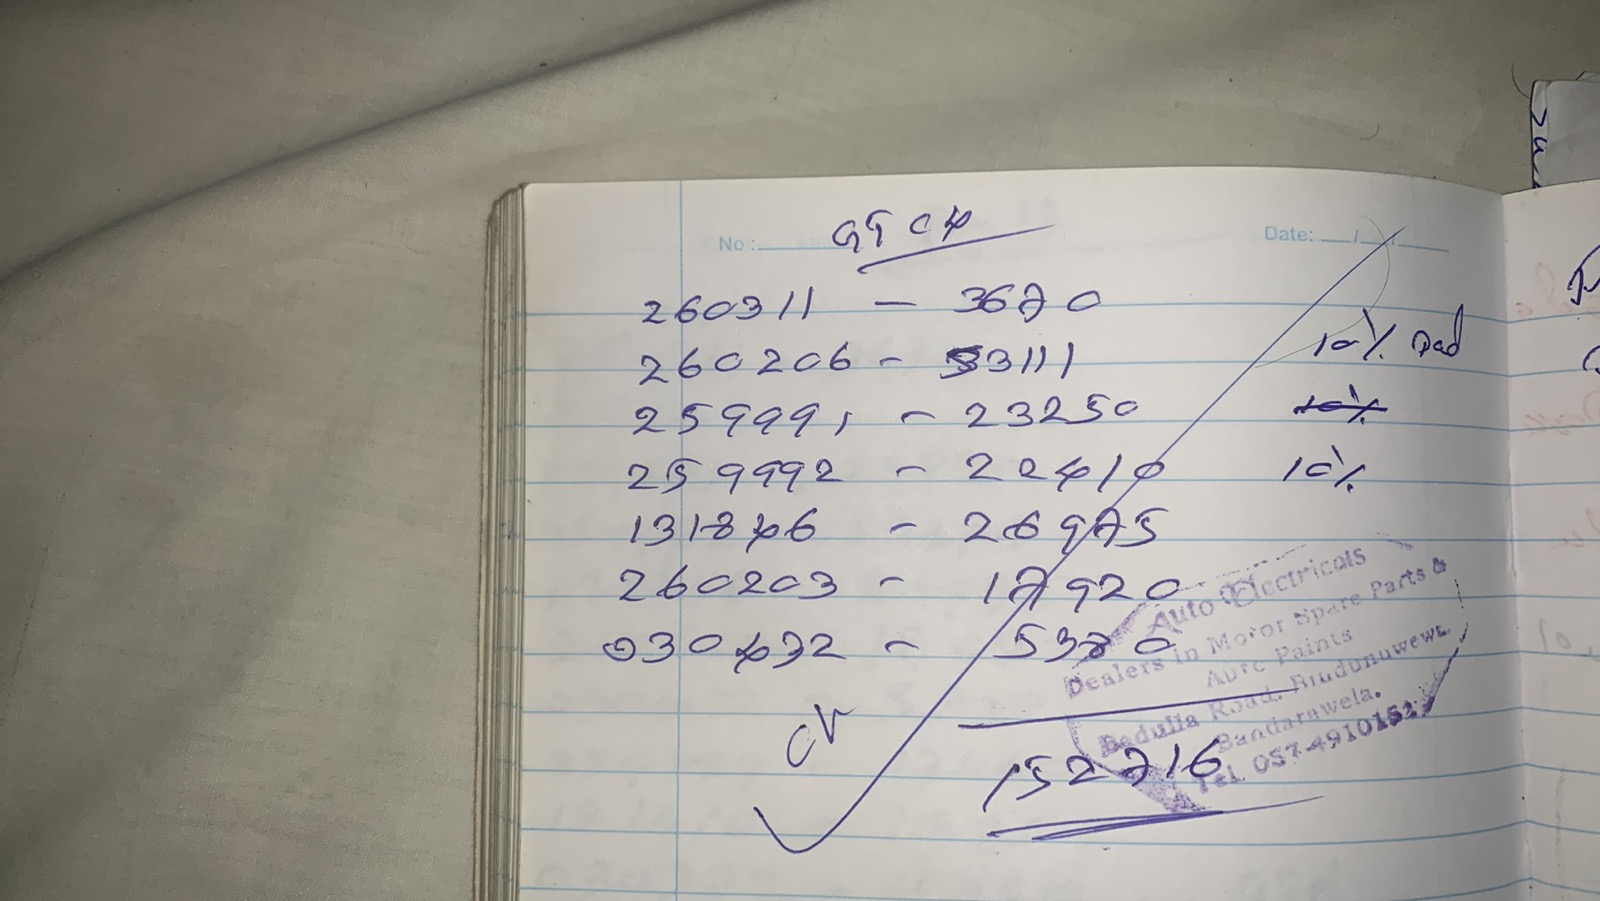 No : Date: __/__/__
260311 - 3670
260206 - 53111 10%
259991 - 23250 10%
259992 - 22410 10%
131846 - 26975
260203 - 17920
030432 - 5380
152716
Auto Electricals
Dealers in Motor Spare Parts &
Auto Paints
Badulla Road, Bindunuwewa,
Bandarawela.
Tel. 057-4910151